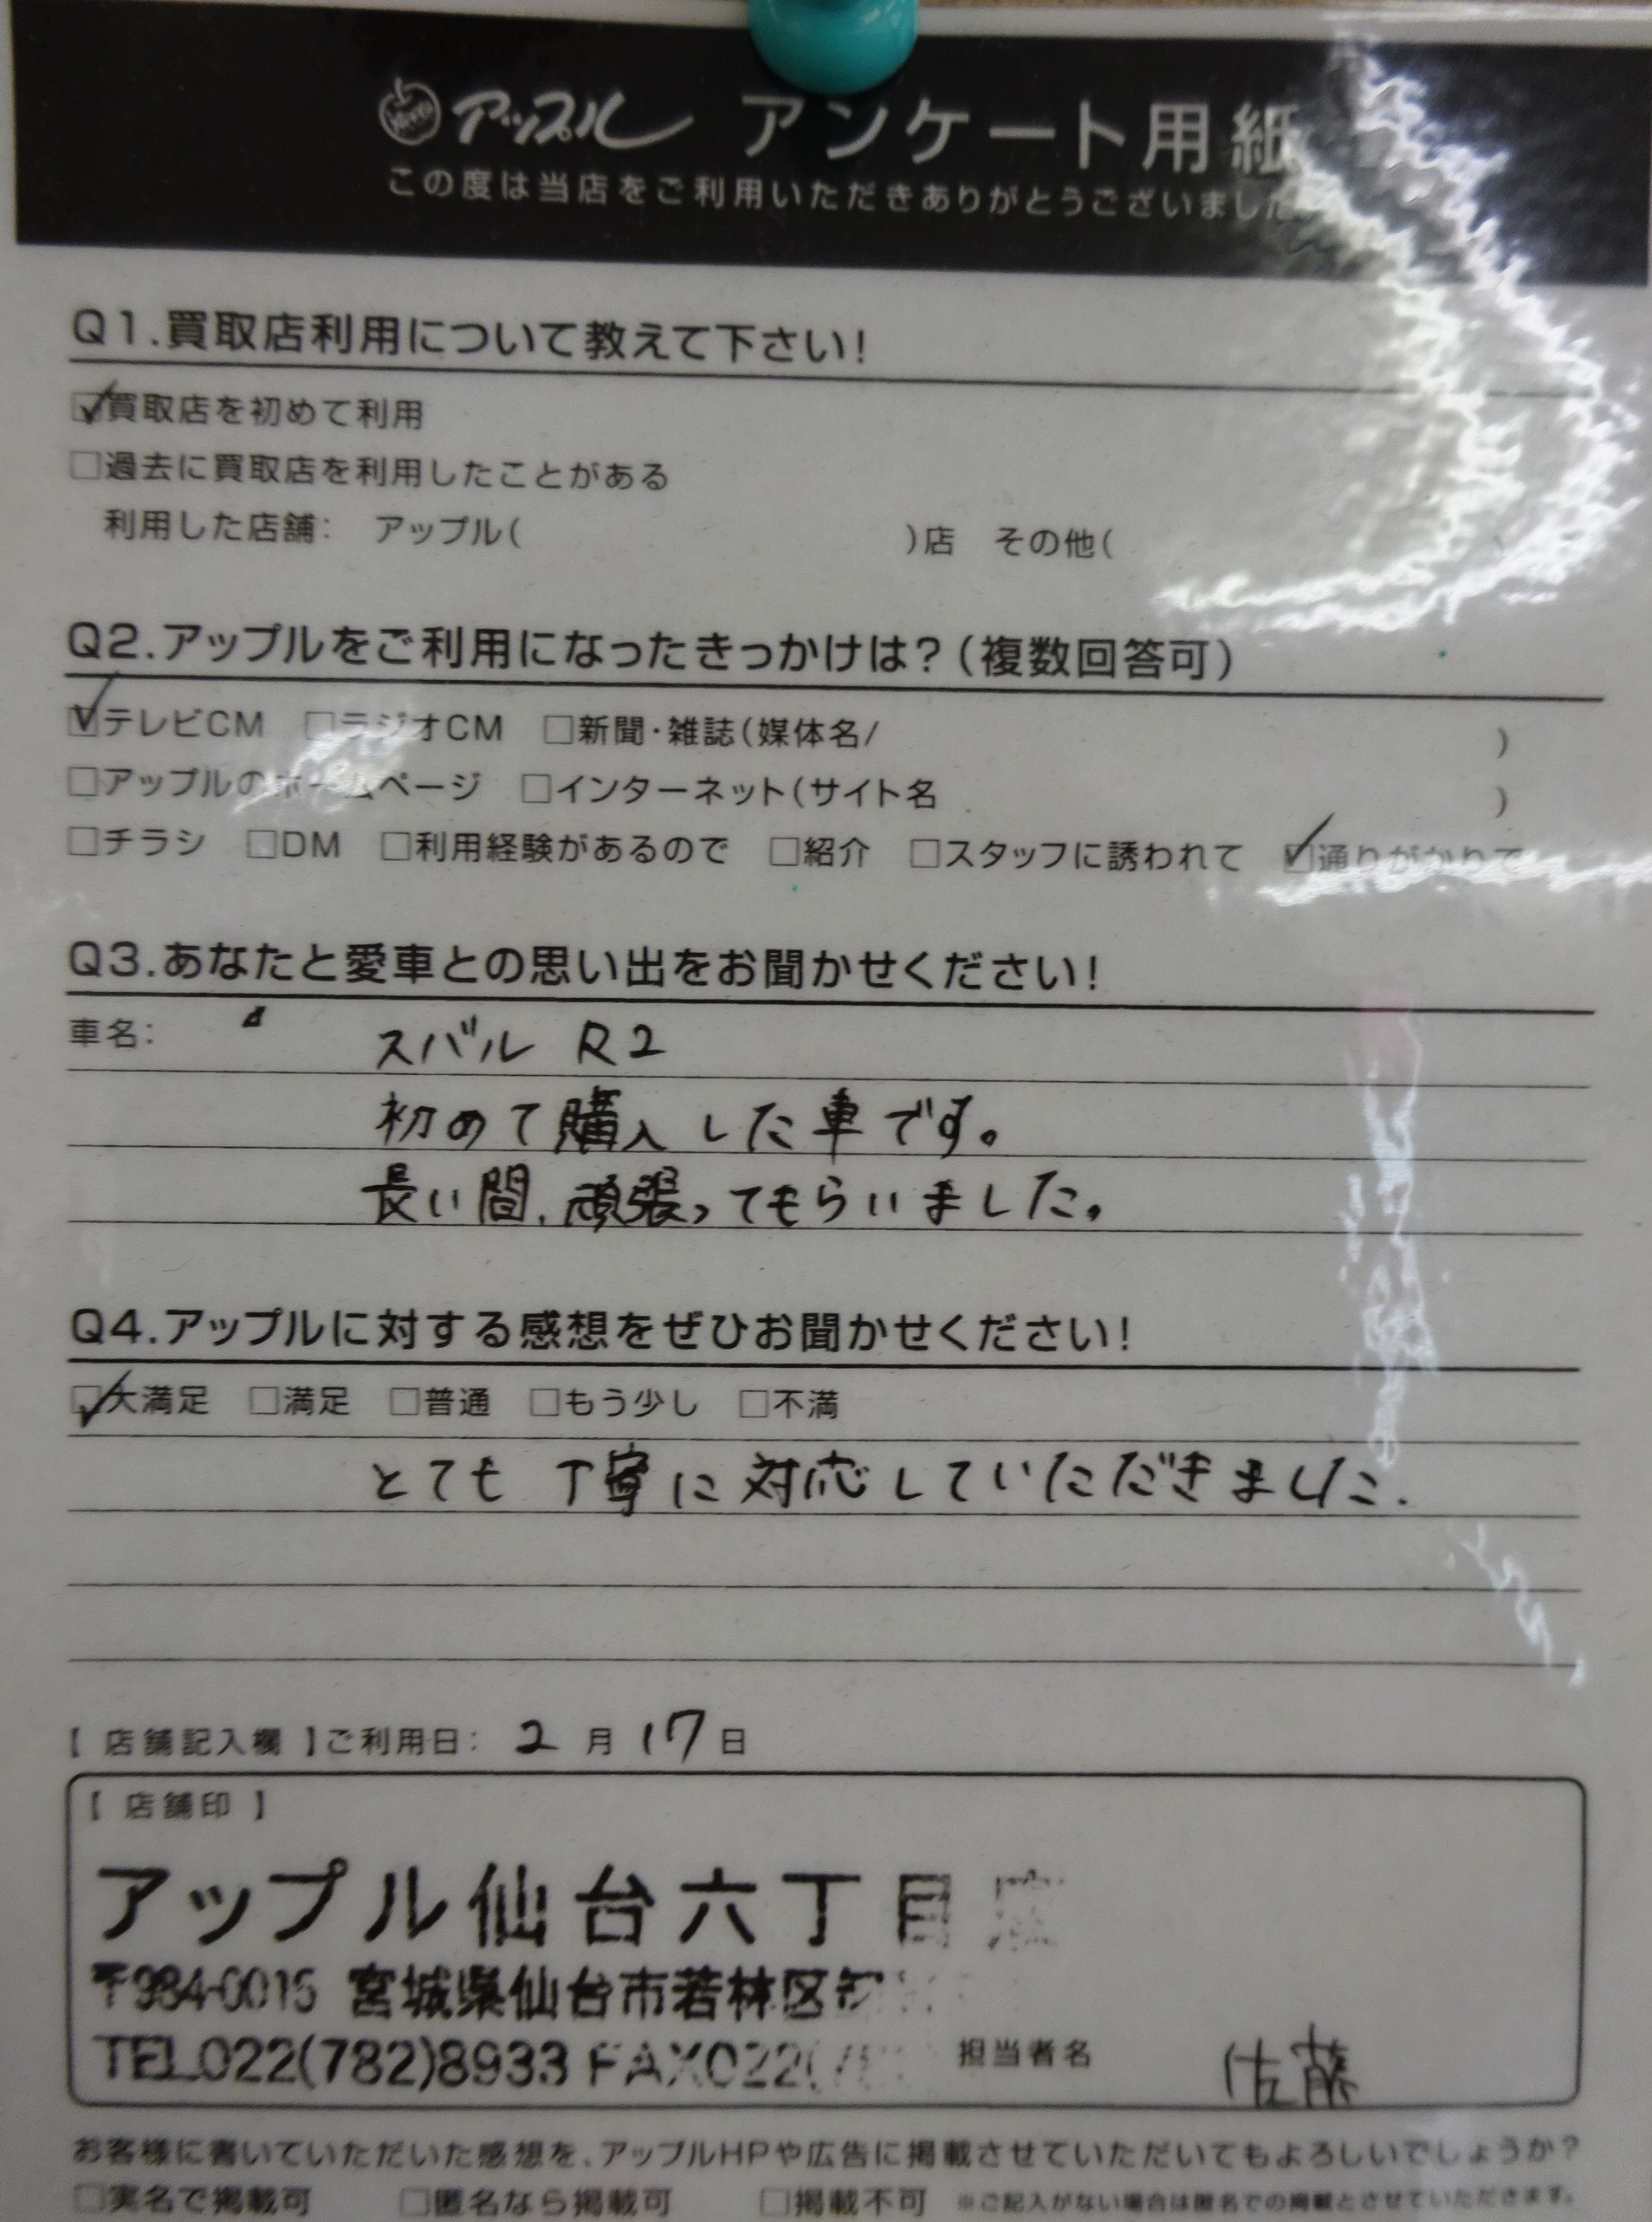 アップル アンケート用紙
この度は当店をご利用いただきありがとうございました
Q1.買取店利用について教えて下さい!
☑買取店を初めて利用
□過去に買取店を利用したことがある
利用した店舗: アップル( )店 その他( )
Q2.アップルをご利用になったきっかけは?(複数回答可)
☑テレビCM □ラジオCM □新聞・雑誌(媒体名/ )
□アップルのホームページ □インターネット(サイト名 )
□チラシ □DM □利用経験があるので □紹介 □スタッフに誘われて ☑通りがかりで
Q3.あなたと愛車との思い出をお聞かせください!
車名: スバル R2
初めて購入した車です。
長い間、頑張ってもらいました。
Q4.アップルに対する感想をぜひお聞かせください!
☑大満足 □満足 □普通 □もう少し □不満
とても丁寧に対応していただきました.
【 店舗記入欄 】ご利用日: 2 月 17 日
【 店舗印 】
アップル仙台六丁目店
〒984-0015 宮城県仙台市若林区
TEL022(782)8933 FAX022(
担当者名 佐藤
お客様に書いていただいた感想を、アップルHPや広告に掲載させていただいてもよろしいでしょうか?
□実名で掲載可 □匿名なら掲載可 □掲載不可 ※ご記入がない場合は匿名での掲載とさせていただきます。